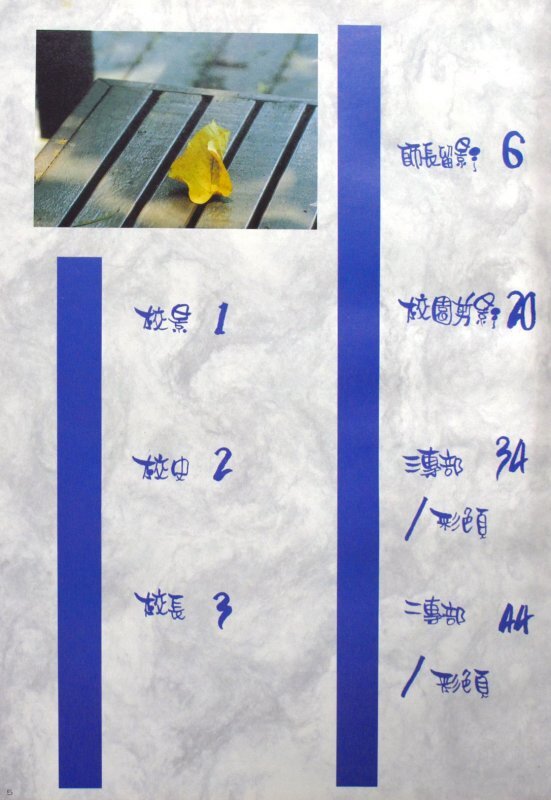 校景 1
校史 2
校長 3
師長留影 6
校園剪影 20
三專部 34
/彩色頁
二專部 44
/彩色頁
5